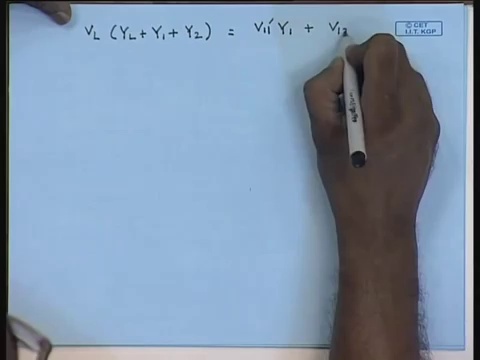 V_L (Y_L + Y_1 + Y_2) = V_11' Y_1 + V_12
© CET
I.I.T. KGP